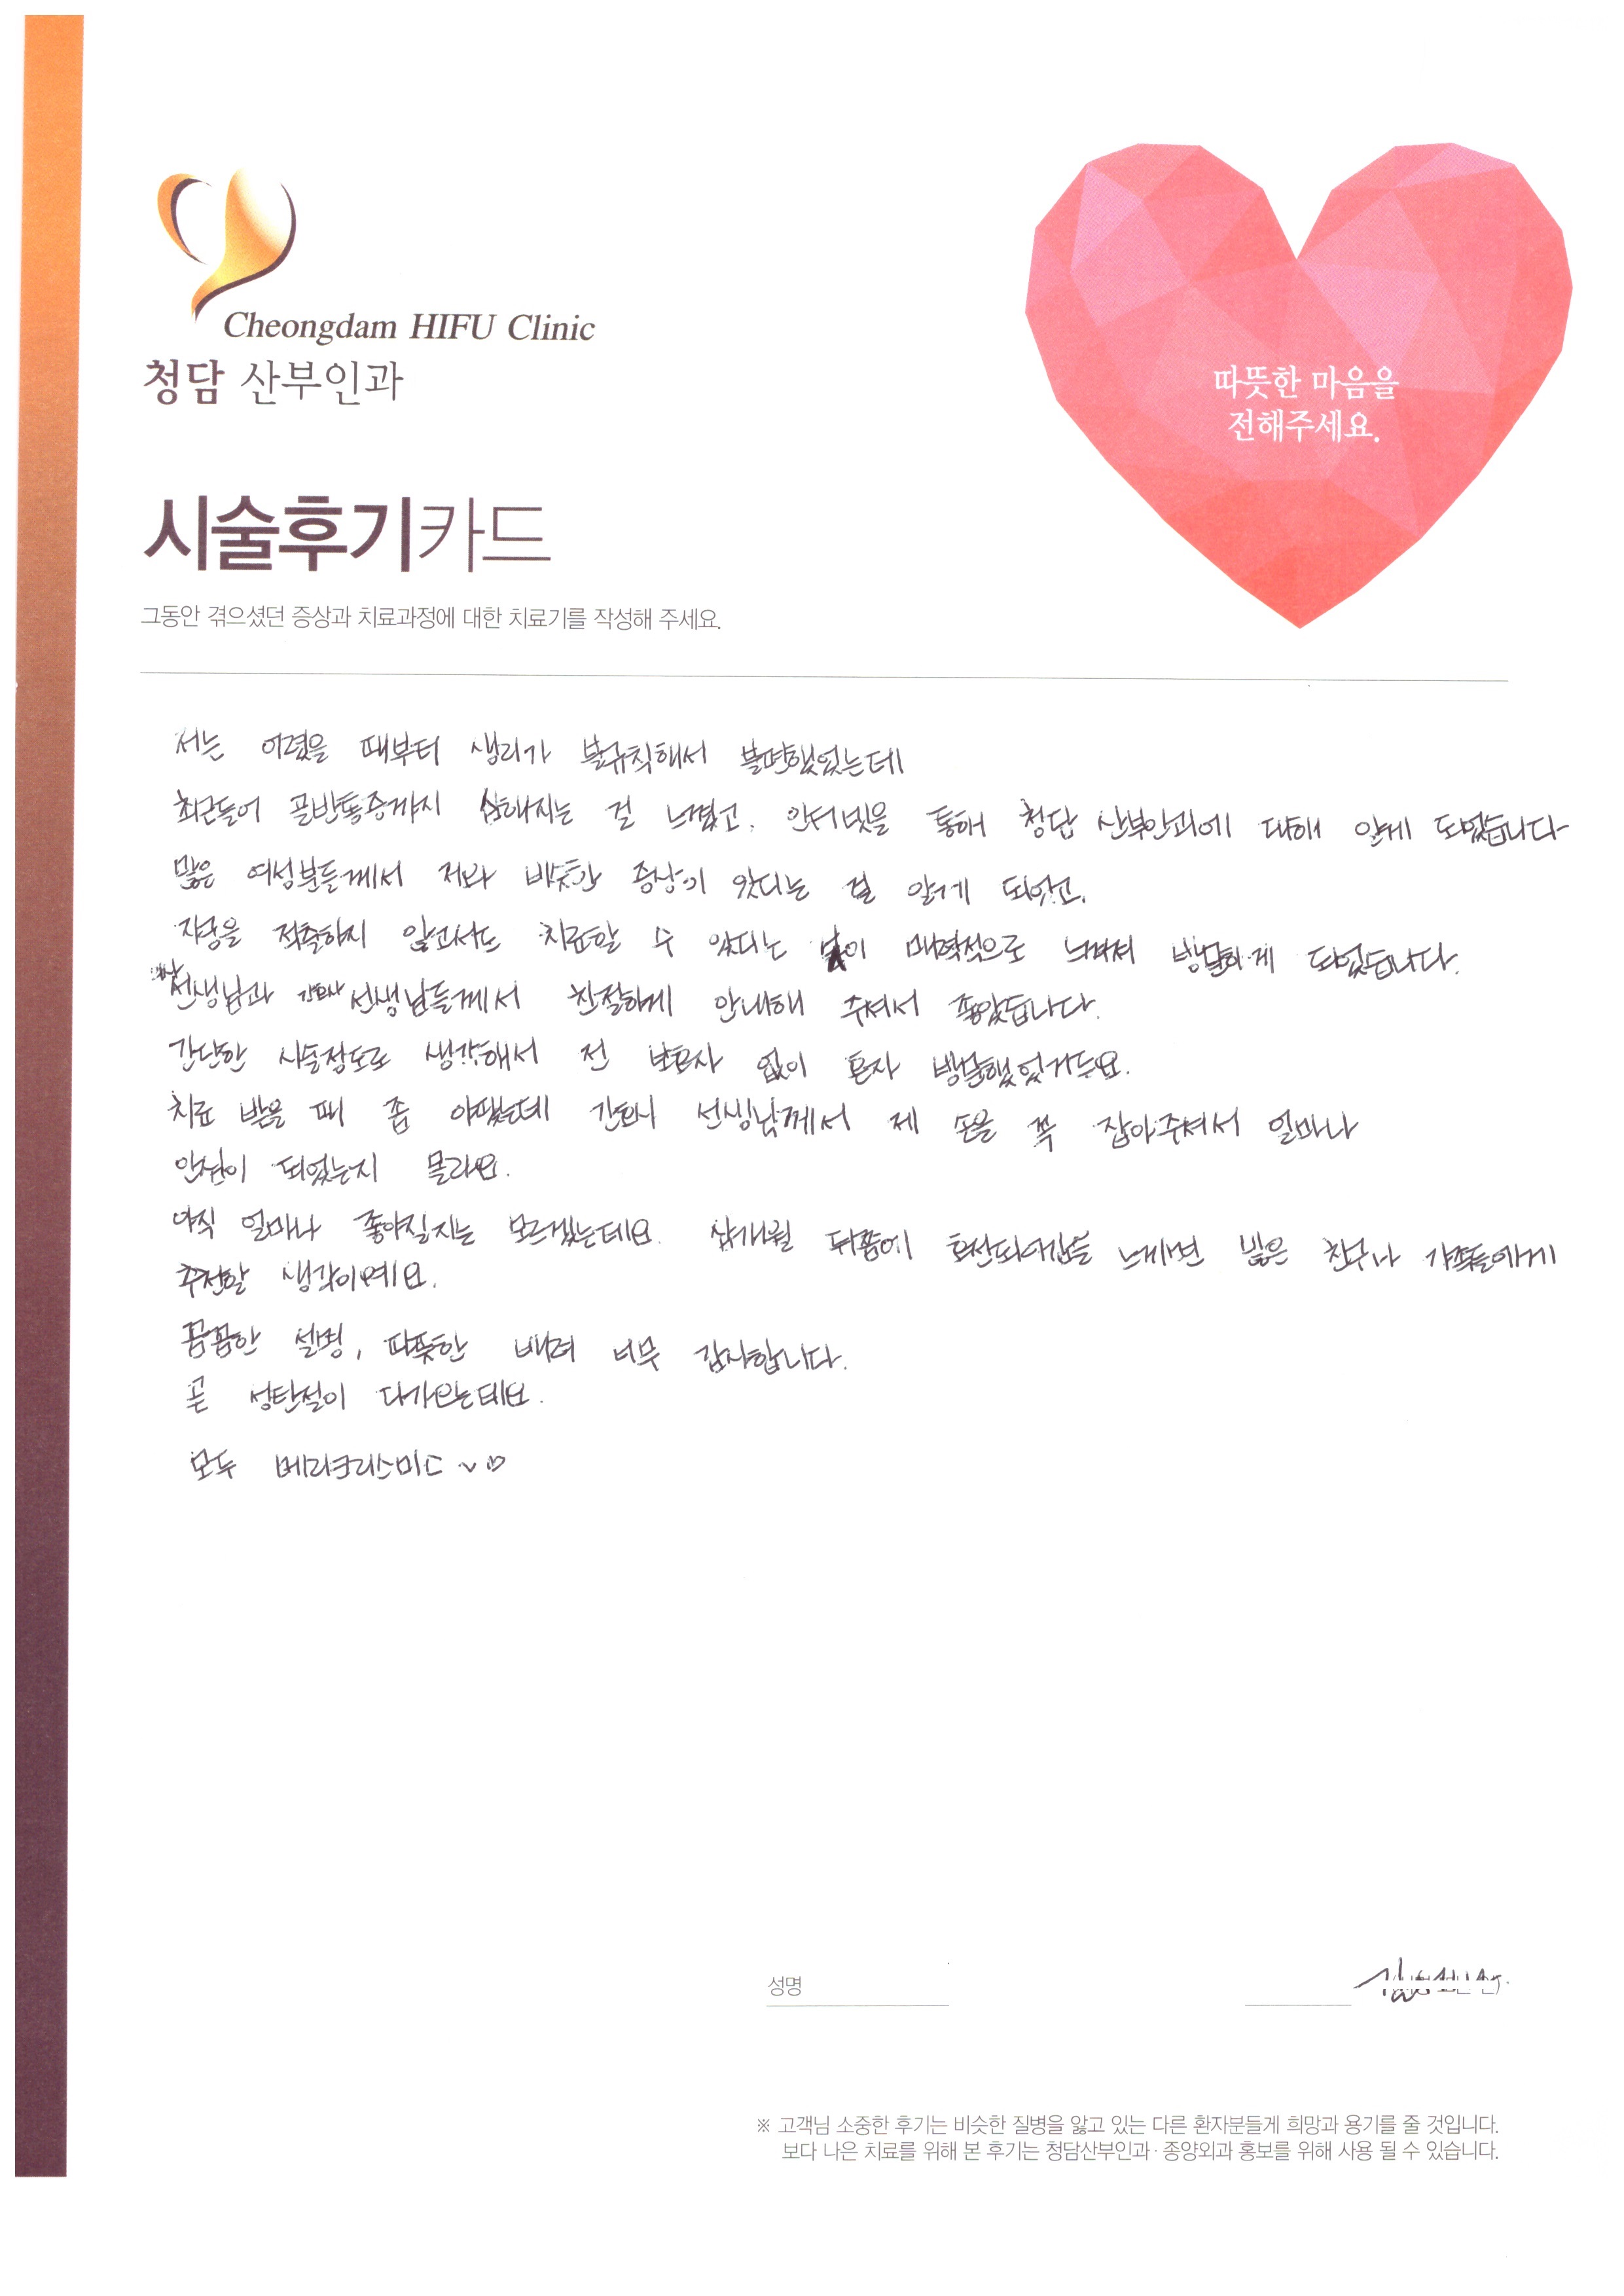 Cheongdam HIFU Clinic
청담 산부인과
따뜻한 마음을
전해주세요.
시술후기카드
그동안 겪으셨던 증상과 치료과정에 대한 치료기를 작성해 주세요.
저는 어렸을 때부터 생리가 불규칙해서 불편했었는데
최근들어 골반통증까지 심해지는 걸 느꼈고, 인터넷을 통해 청담 산부인과에 대해 알게 되었습니다
많은 여성분들께서 저와 비슷한 증상이 있다는 걸 알게 되었고,
자궁을 적출하지 않고서도 치료할 수 있다는 이 매력적으로 느껴져 방문하게 되었습니다.
의사 선생님과 간호사 선생님들께서 친절하게 안내해 주셔서 좋았습니다.
간단한 시술정도로 생각해서 전 보호자 없이 혼자 방문했었거든요.
치료 받을 때 좀 아팠는데 간호사 선생님께서 제 손을 꼭 잡아주셔서 얼마나
안심이 되었는지 몰라요.
아직 얼마나 좋아질지는 모르겠는데요. 삼개월 뒤쯤에 호전되어감을 느끼면 많은 친구나 가족들에게
추천할 생각이예요.
꼼꼼한 설명, 따뜻한 배려 너무 감사합니다.
곧 성탄절이 다가오는데요.
모두 메리크리스마스 ~♡
성명
※ 고객님 소중한 후기는 비슷한 질병을 앓고 있는 다른 환자분들게 희망과 용기를 줄 것입니다.
보다 나은 치료를 위해 본 후기는 청담산부인과·종양외과 홍보를 위해 사용 될 수 있습니다.